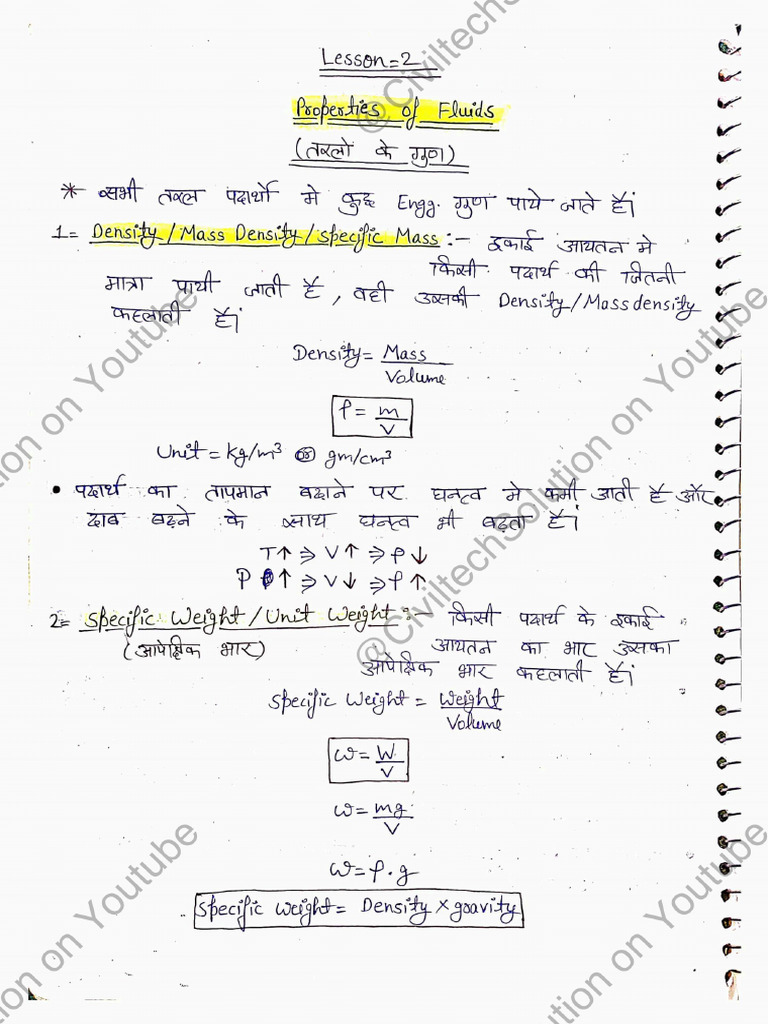 Lesson=2
Properties of Fluids
(तरलो के गुण)
* सभी तरल पदार्थो मे कुछ Engg. गुण पाये जाते है।
1= Density/Mass Density/specific Mass:- इकाई आयतन मे
किसी पदार्थ की जितनी
मात्रा पायी जाती है, वही उसकी Density/Mass density
कहलाती है।
Density= Mass
Volume
ρ = m
V
Unit = kg/m³ or gm/cm³
• पदार्थ का तापमान बढाने पर घनत्व मे कमी आती है और
दाब बढ़ने के साथ घनत्व भी बढ़ता है।
T↑ ⇒ V↑ ⇒ ρ↓
P ↑ ⇒ V↓ ⇒ ρ↑
2= Specific Weight/Unit Weight:- किसी पदार्थ के इकाई
(आपेक्षिक भार) आयतन का भार उसका
आपेक्षिक भार कहलाती है।
Specific Weight = Weight
Volume
ω = W
V
ω = mg
V
ω = ρ.g
Specific weight = Density × gravity
@CiviltechSolution on Youtube
@CiviltechSolution on Youtube
tion on Youtube
tion on Youtube
ution on Youtube